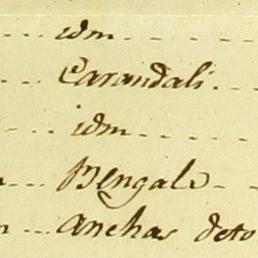 idm
Carandali
idm
Bengala
anchas deto